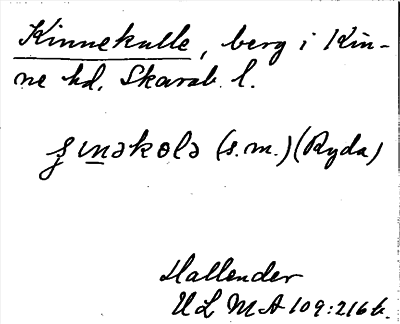 Kinnekulle, berg i Kin-
ne hd, Skarab. l.
ʂinəkɵlə (s.m.) (Ryda)
Hallender
ULMA 109:216 b.